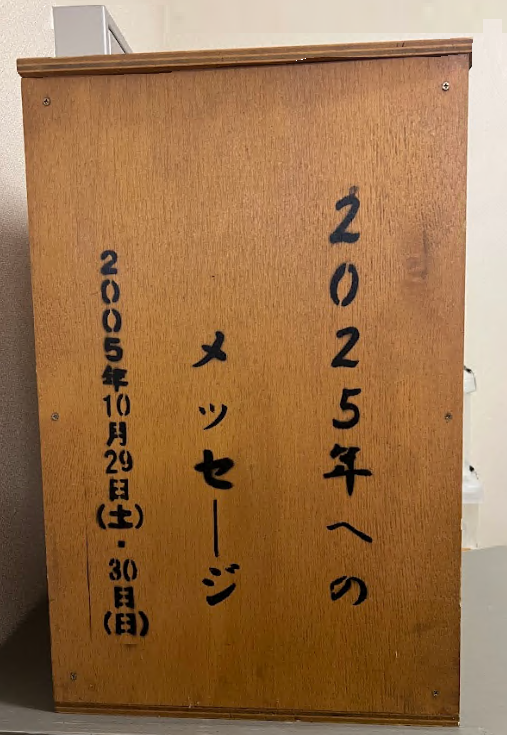 2025年への
メッセージ
2005年10月29日(土)・30日(日)